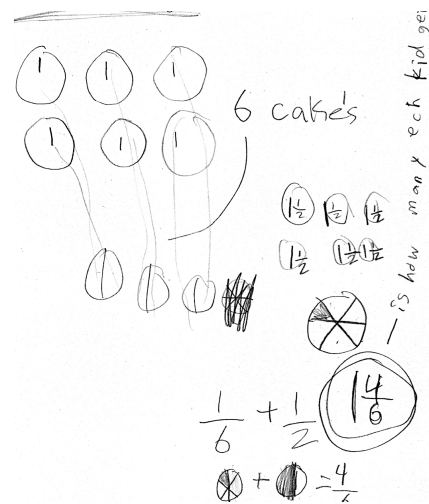 1 1 1
1 1 1
6 cakes
1 1/2 1 1/2 1 1/2
1 1/2 1 1/2 1 1/2
1 4/6
is how many ech kid get
1/6 + 1/2
+ = 4/6